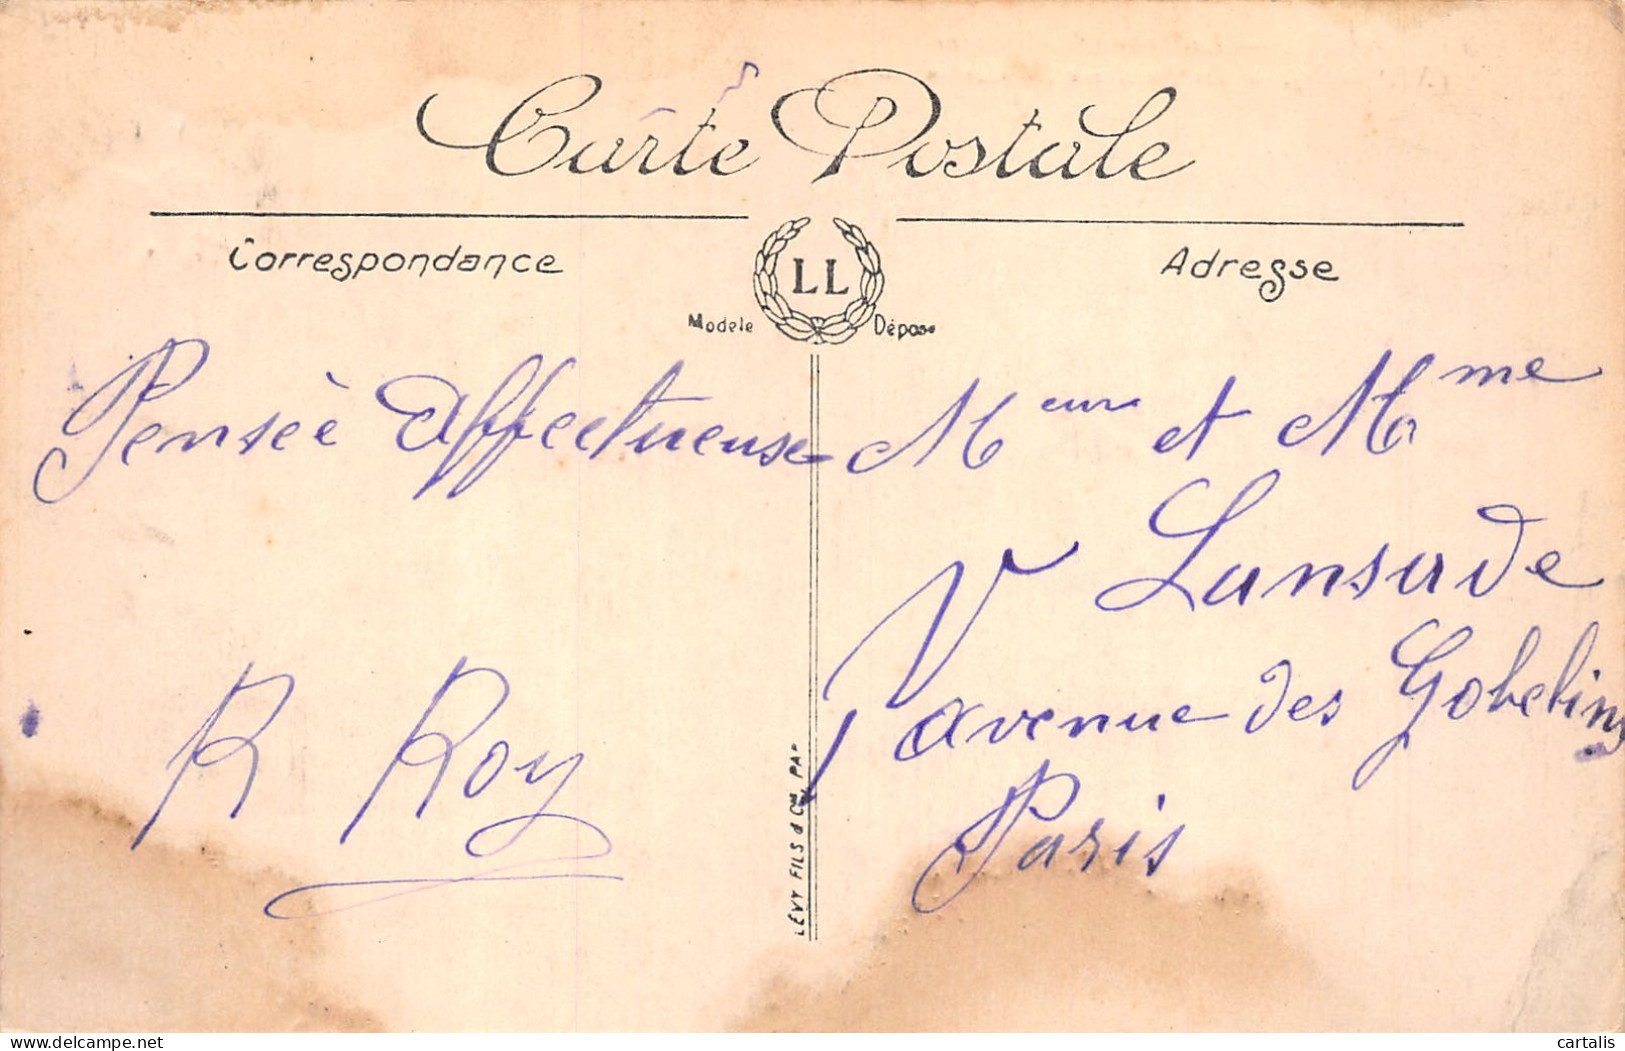 Carte Postale
Correspondance
LL
Modèle Déposé
Adresse
Penseè affectueuse
R Roy
Meur et Mme
Lansade
avenue des Gobelins
Paris
LÉVY FILS & Cie PAR
cartalis